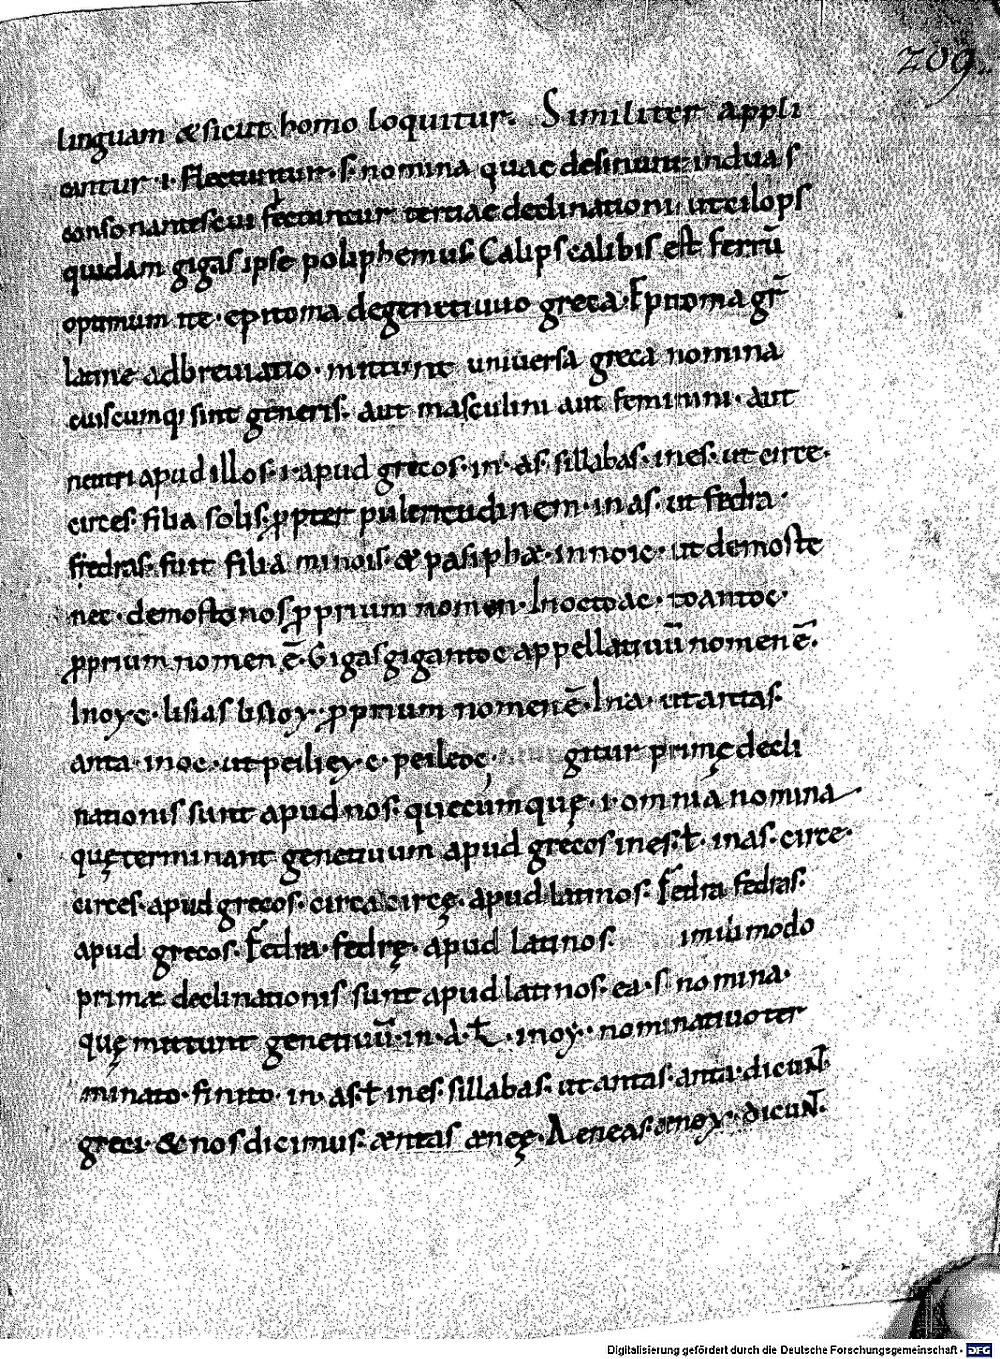 209
linguam &sicut homo loquitur. Similiter appli
cantur ·i· flectuntur ·s· nomina quae desinunt induas
consonantes cui flectuntur tertiae declinationi utcilops
quidam gigas ipse poliphemus Calips calibis est ferrū
optimum ite· epitoma degenetiuuo greca· Epitoma gr̄
latine adbreuiatio· mittunt uniuersa greca nomina
cuiscumq; sint generis· aut masculini aut feminini· aut
neutri apud illos·i·apud grecos·in·as·sillabas·ines·ut circe·
circes· filia solis· ꝓpter pulcritudinem·inas· ut fedra·
fedras· fuit filia minois· & pasiphæ·innoic· ut demoste
nec· demostenos ꝓprium nomen· Inoctoac· toantoc·
ꝓprium nomen ē· Gigas gigantoc appellatiuū nomen ē·
Inoyc· lisias lisioy· ꝓprium nomen ē· Ina· utantas·
anta·inoc·ut peiliey·c·peileoc· gitur primę decli
nationis sunt apud nos· quecumquę·i·omnia nomina
quęterminant genetiuum apud grecos ines·ł·inas·circe·
circes·apud grecos·circa circę·apud latinos· Fedra fedras·
apud grecos· Fedra·fedrę·apud latinos· imili modo
primæ declinationis sunt apud latinos·ea·s·nomina·
quę mittunt genetiuū·in·A·ł·inoy·nominatiuoter
minato·finito·in·as·ł ines·sillabas·ut antas·anta·dicuɴt
greci·& nos dicimus·æntas ænęę·Aeneas ænoy·dicuɴt·
Digitalisierung gefördert durch die Deutsche Forschungsgemeinschaft - DFG